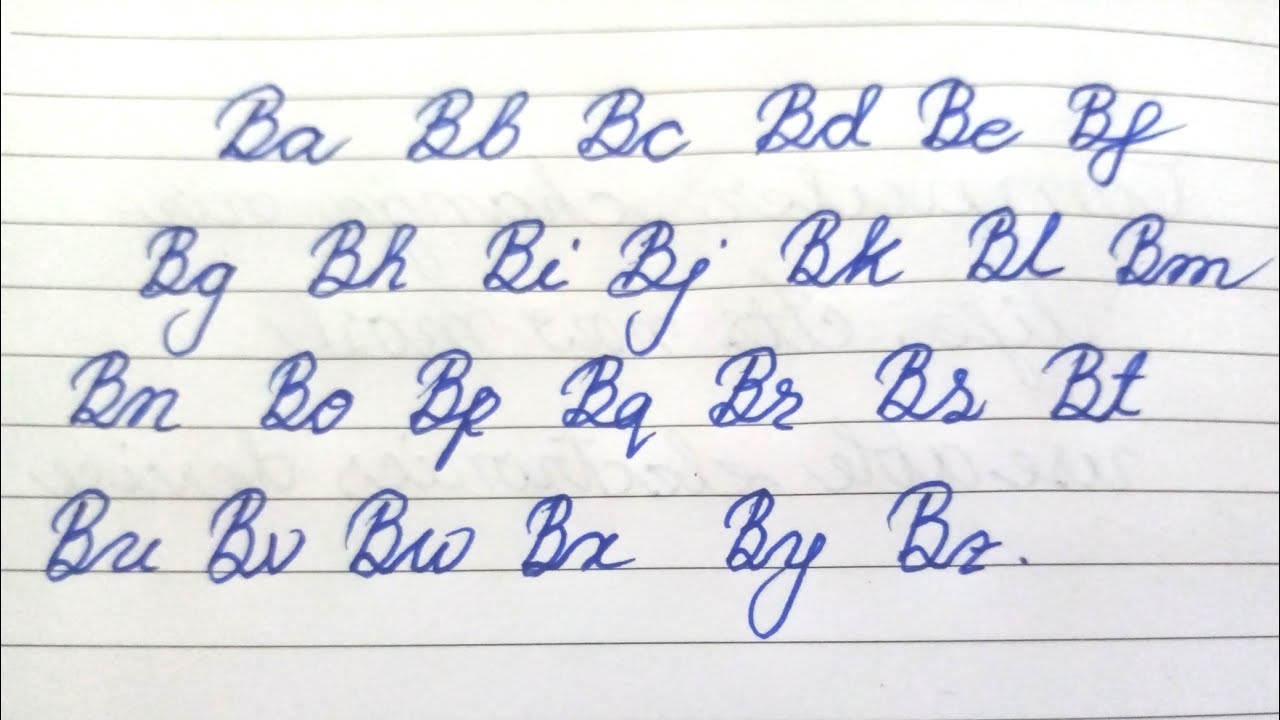 Ba Bb Bc Bd Be Bf
Bg Bh Bi Bj Bk Bl Bm
Bn Bo Bp Bq Br Bs Bt
Bu Bv Bw Bx By Bz.